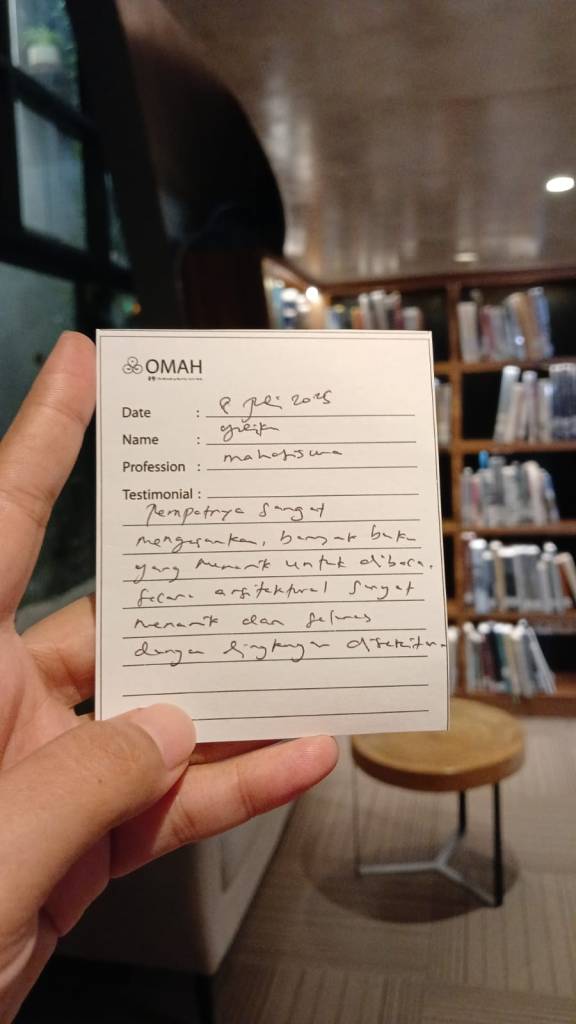 OMAH
Date : 8 Juli 2025
Name :
Profession : mahasiswa
Testimonial :
Tempatnya sangat
mengesankan, banyak buku
yang menarik untuk dibaca.
Secara arsitektural sangat
menarik dan selaras
dengan lingkungan disekitar.